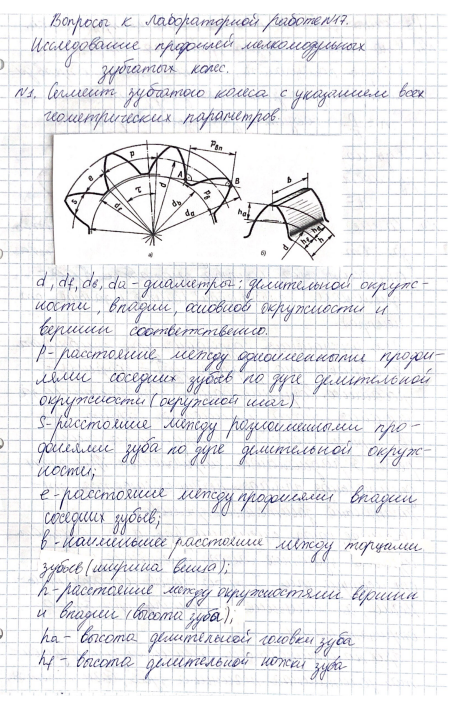 Вопросы к лабораторной работе №17.
Исследование профилей мелкомодульных
зубчатых колес.
№1. Сегмент зубчатого колеса с указанием всех
геометрических параметров.
Pвn
P
e
s
A
B
df
τ
d
dв
da
Pв
а)
b
ha
d
hf
h
б)
d, df, dв, da - диаметры: делительной окруж-
ности, впадин, основной окружности и
вершин соответственно.
P - расстояние между одноименными профи-
лями соседних зубьев по дуге делительной
окружности (окружной шаг)
S - расстояние между разноименными про-
филями зуба по дуге делительной окруж-
ности;
e - расстояние между профилями впадин
соседних зубьев;
в - наименьшее расстояние между торцами
зубьев (ширина венца);
h - расстояние между окружностями вершин
и впадин (высота зуба);
ha - высота делительной головки зуба
hf - высота делительной ножки зуба